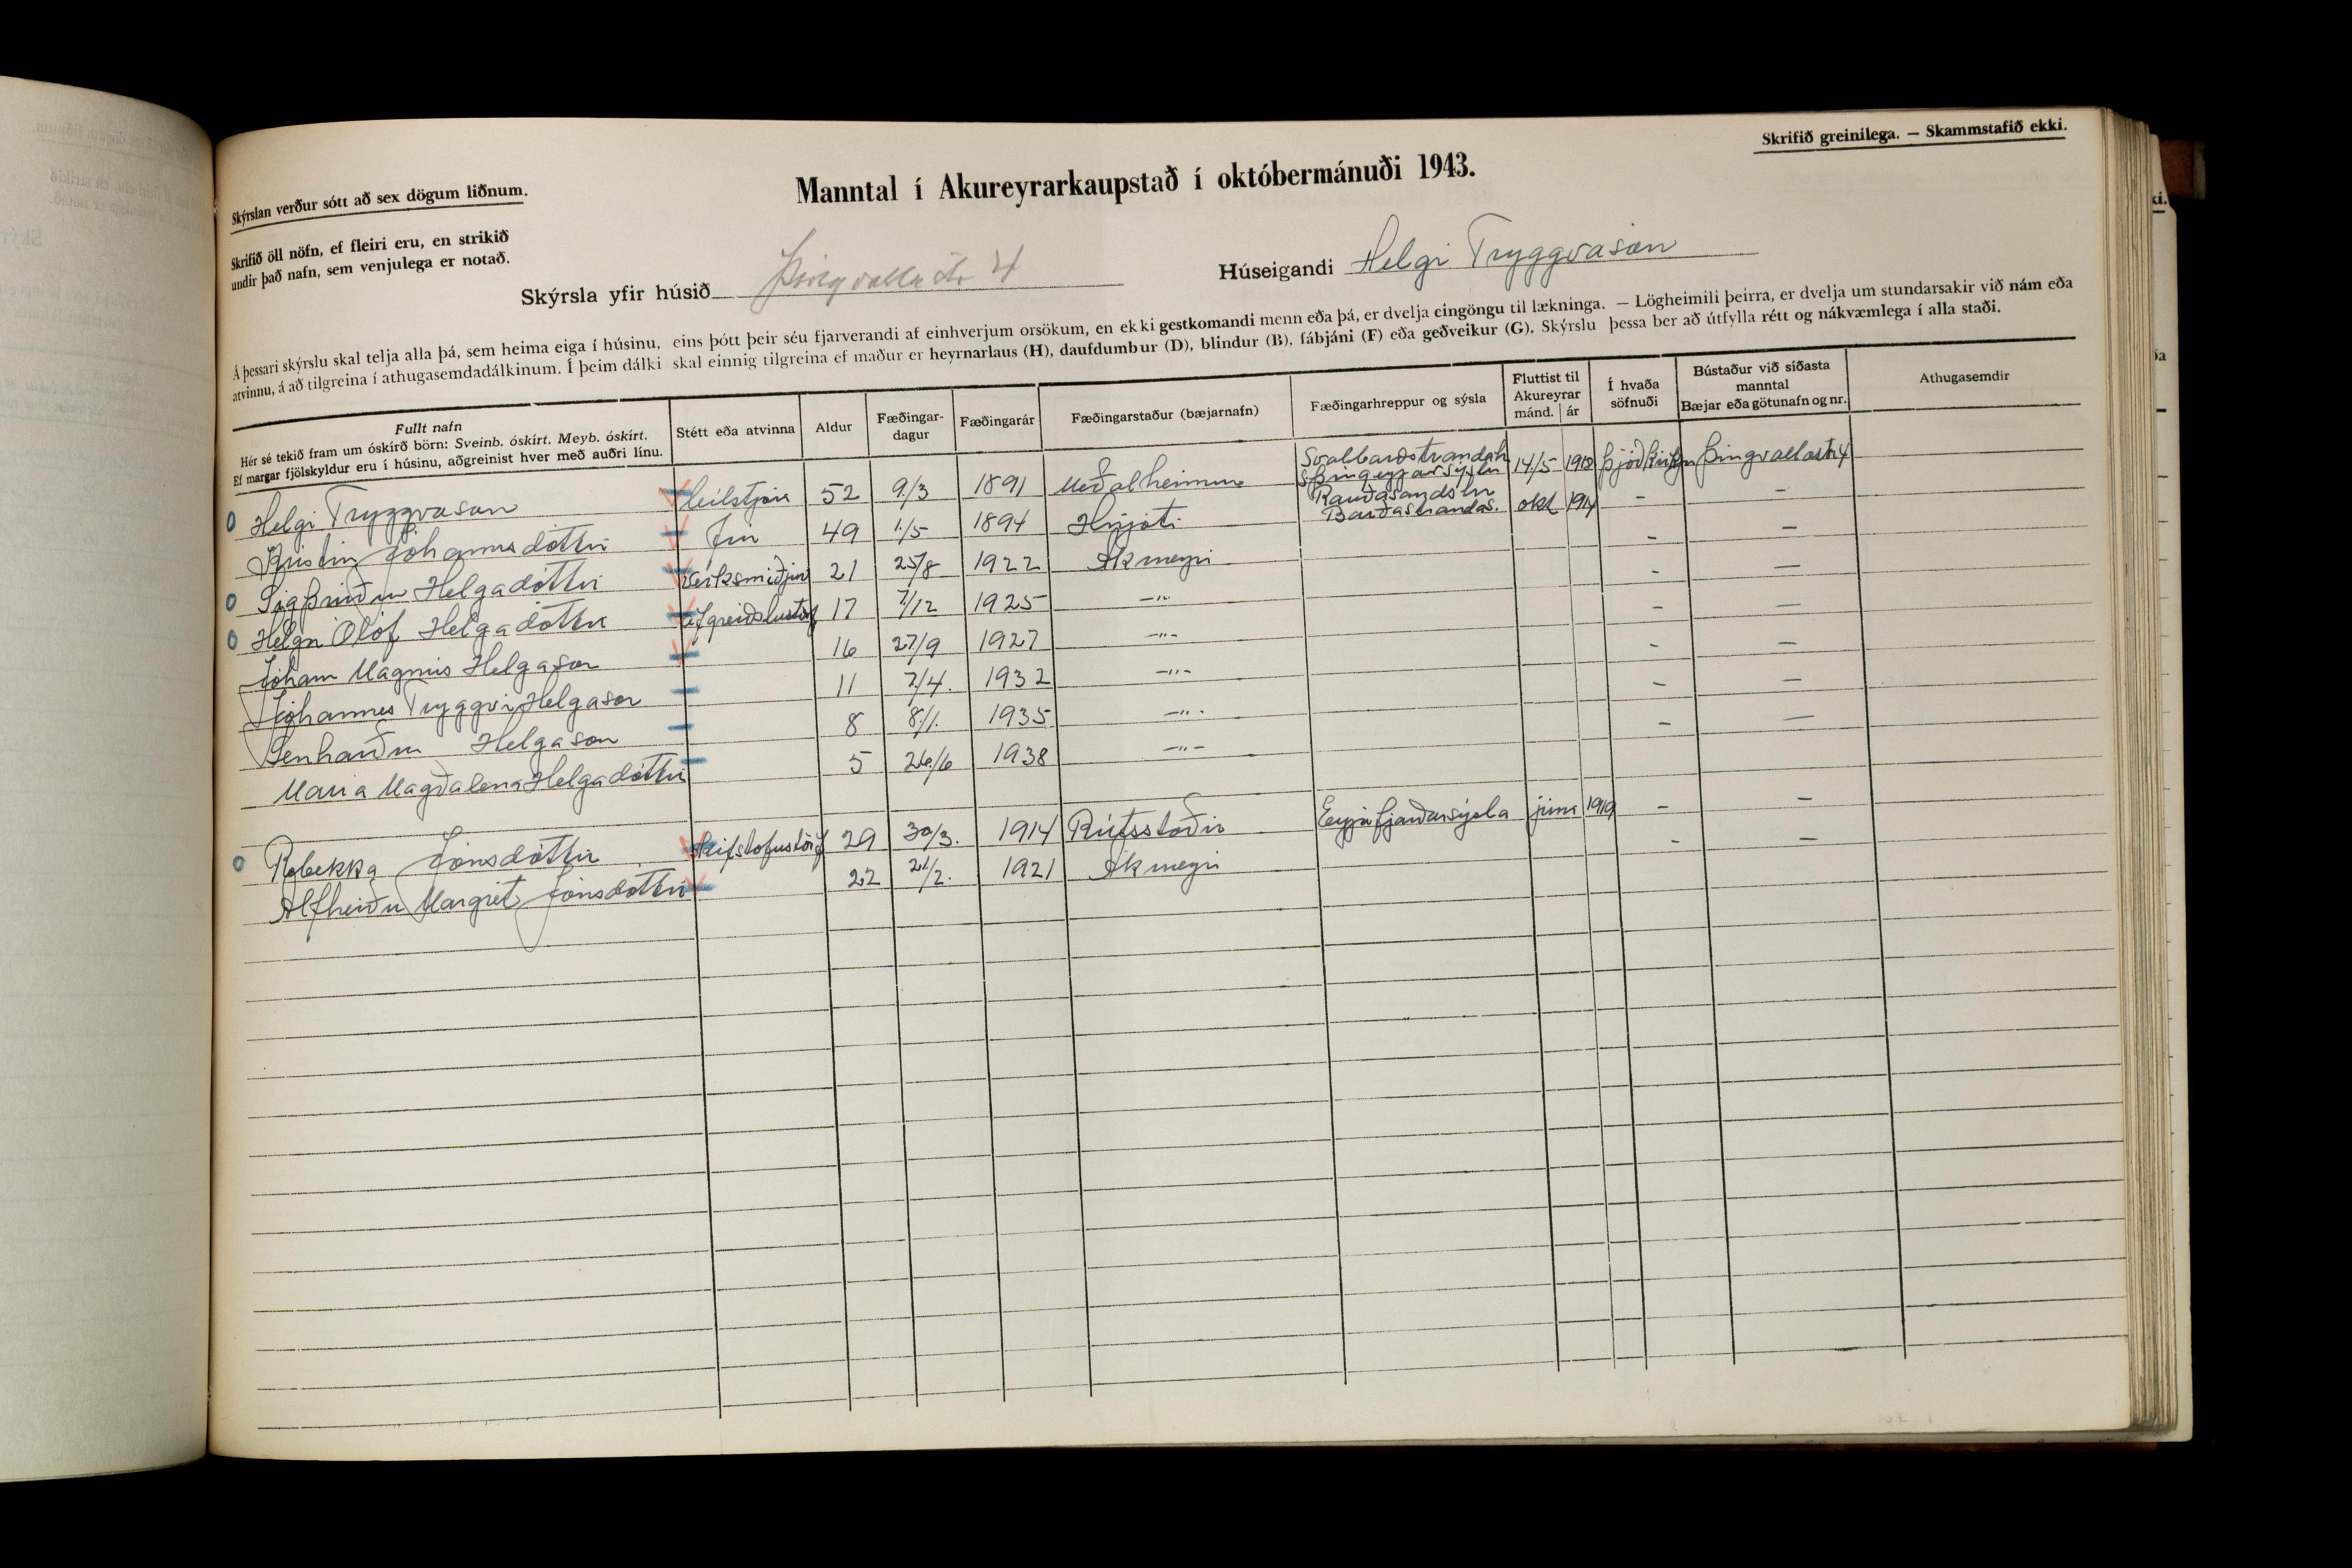 Skrifið greinilega. — Skammstafið ekki.
Skýrslan verður sótt að sex dögum liðnum.
Manntal í Akureyrarkaupstað í októbermánuði 1943.
Skrifið öll nöfn, ef fleiri eru, en strikið
undir það nafn, sem venjulega er notað.
Skýrsla yfir húsið Þingvallastr 4 Húseigandi Helgi Tryggvason
Á þessari skýrslu skal telja alla þá, sem heima eiga í húsinu, eins þótt þeir séu fjarverandi af einhverjum orsökum, en ekki gestkomandi menn eða þá, er dvelja eingöngu til lækninga. — Lögheimili þeirra, er dvelja um stundarsakir við nám eða
atvinnu, á að tilgreina í athugasemdadálkinum. Í þeim dálki skal einnig tilgreina ef maður er heyrnarlaus (H), daufdumbur (D), blindur (B), fábjáni (F) eða geðveikur (G). Skýrslu þessa ber að útfylla rétt og nákvæmlega í alla staði.
Fullt nafn
Hér sé tekið fram um óskírð börn: Sveinb. óskírt. Meyb. óskírt.
Ef margar fjölskyldur eru í húsinu, aðgreinist hver með auðri línu.
Stétt eða atvinna
Aldur
Fæðingar-
dagur
Fæðingarár
Fæðingarstaður (bæjarnafn)
Fæðingarhreppur og sýsla
Fluttist til
Akureyrar
mánd. | ár
Í hvaða
söfnuði
Bústaður við síðasta
manntal
Bæjar eða götunafn og nr.
Athugasemdir
Helgi Tryggvason Bílstjóri 52 9/3 1891 Meðalheimur Svalbarðstrandah S Þingeyjarsýslu 14/5 1918 Þjóðkirkjan Þingvallastr 4
Kristín Jóhannesdóttir frú 49 1/5 1894 Hnjóti Rauðasandshr Barðastrandas. okt 1914 - -
Sigþrúður Helgadóttir Verksmiðjust 21 25/8 1922 Akureyri - -
Helga Ólöf Helgadóttir Afgreiðslustörf 17 7/12 1925 —"— - -
Jóhann Magnús Helgason 16 27/9 1927 —"— - -
Jóhannes Tryggvi Helgason 11 2/4. 1932 —"— - -
Lenharður Helgason 8 8/1. 1935 —"— - -
María Magðalena Helgadóttir 5 26/6 1938 —"— - -
Rebekka Jónsdóttir Skrifstofustörf 29 30/3. 1914 Rútsstaðir Eyjafjarðarsýsla júní 1919 - -
Alfheiður Margrét Jónsdóttir 22 21/2. 1921 Akureyri - -